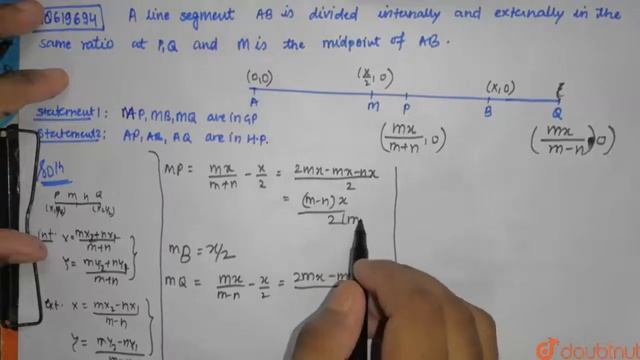 Q619694 A line segment AB is divided internally and externally in the
same ratio at P,Q and M is the midpoint of AB.
(0,0) (x/2, 0) (x, 0)
A M P B Q
(mx/m+n, 0) (mx/m-n, 0)
Statement1: MP, MB, MQ are in GP
Statement2: AP, AB, AQ are in H.P.
Soln
P m n Q
Int. x = mx2+nx1/m+n
y = my2+ny1/m+n
Ext. x = mx2-nx1/m-n
y = my2-ny1
MP = mx/m+n - x/2 = 2mx-mx-nx/2
= (m-n)x/2(m
MB = x/2
MQ = mx/m-n - x/2 = 2mx-m
doubtnut